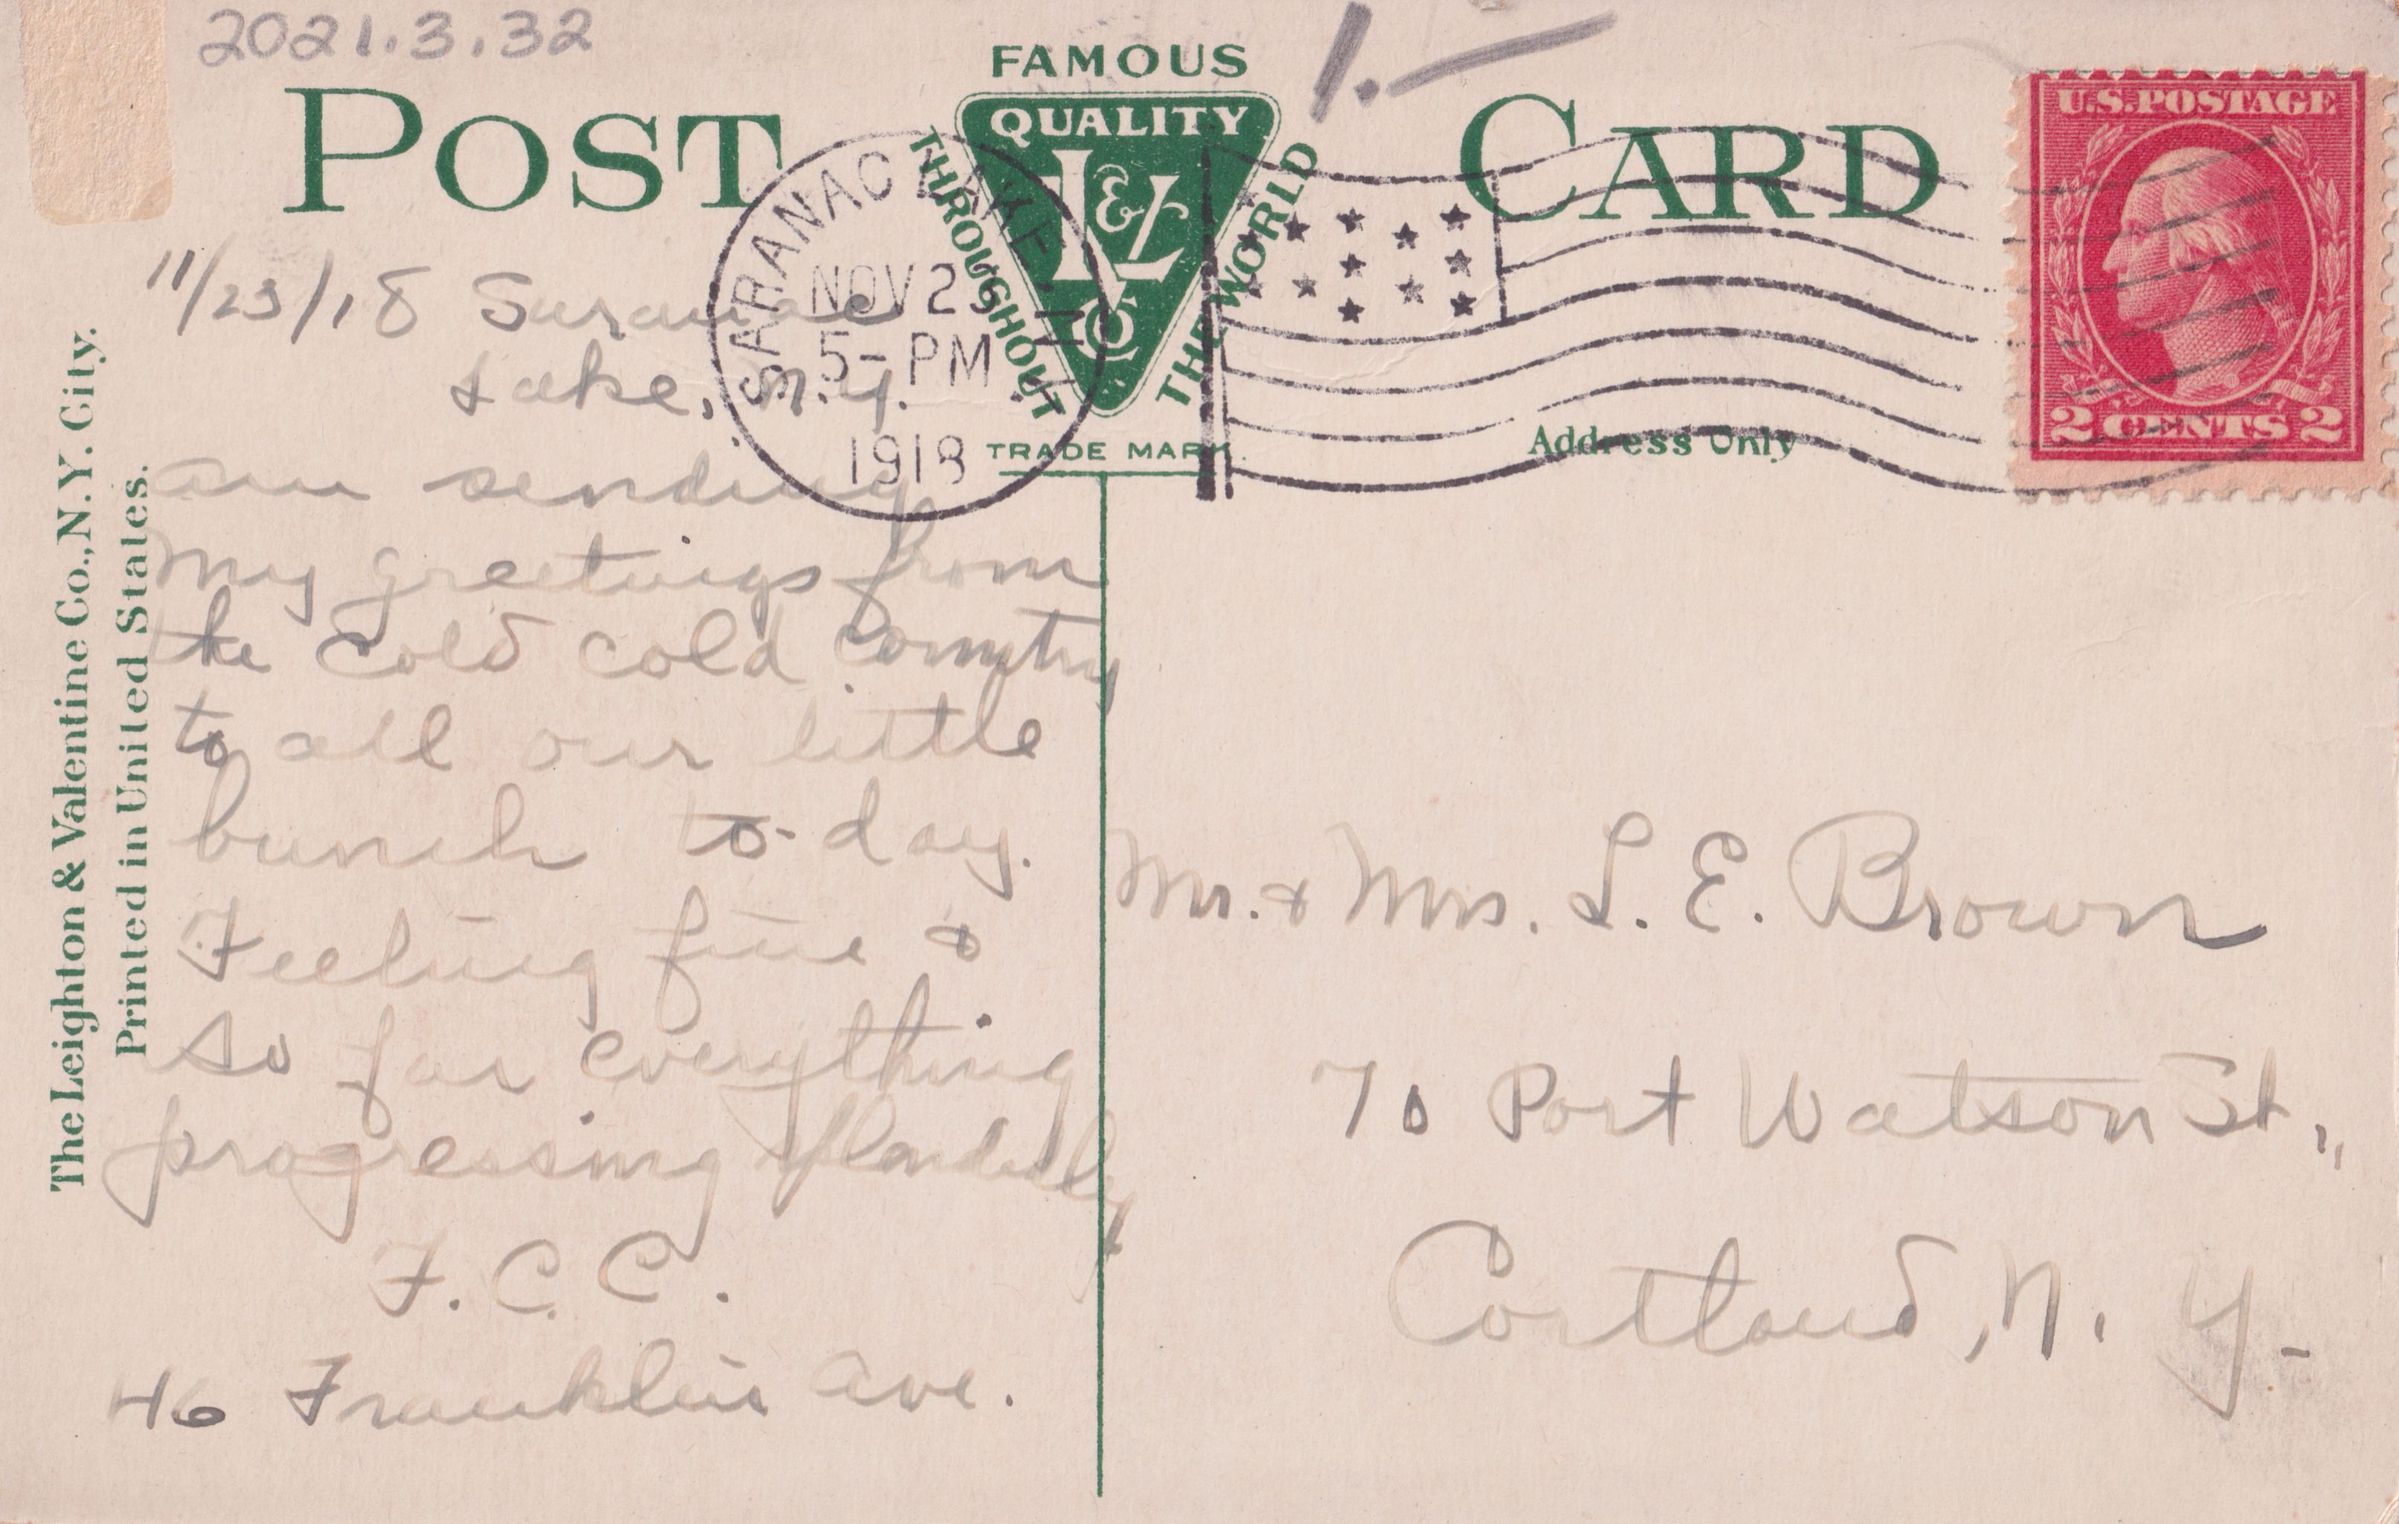 2021.3.32
1.—
POST CARD
FAMOUS
QUALITY
L & V
Co
THROUGHOUT THE WORLD
TRADE MARK.
Address Only
U.S. POSTAGE
2 CENTS 2
SARANAC LAKE, N.Y.
NOV 23
5 - PM
1918
The Leighton & Valentine Co., N.Y. City.
Printed in United States.
11/23/18 Saranac
Lake, N.Y.
Am sending
my greetings from
the cold cold country
to all our little
bunch to-day.
Feeling fine &
so far everything
progressing splendidly
F. C. C.
46 Franklin Ave.
Mr. & Mrs. L. E. Brown
70 Port Watson St.,
Cortland, N. Y.